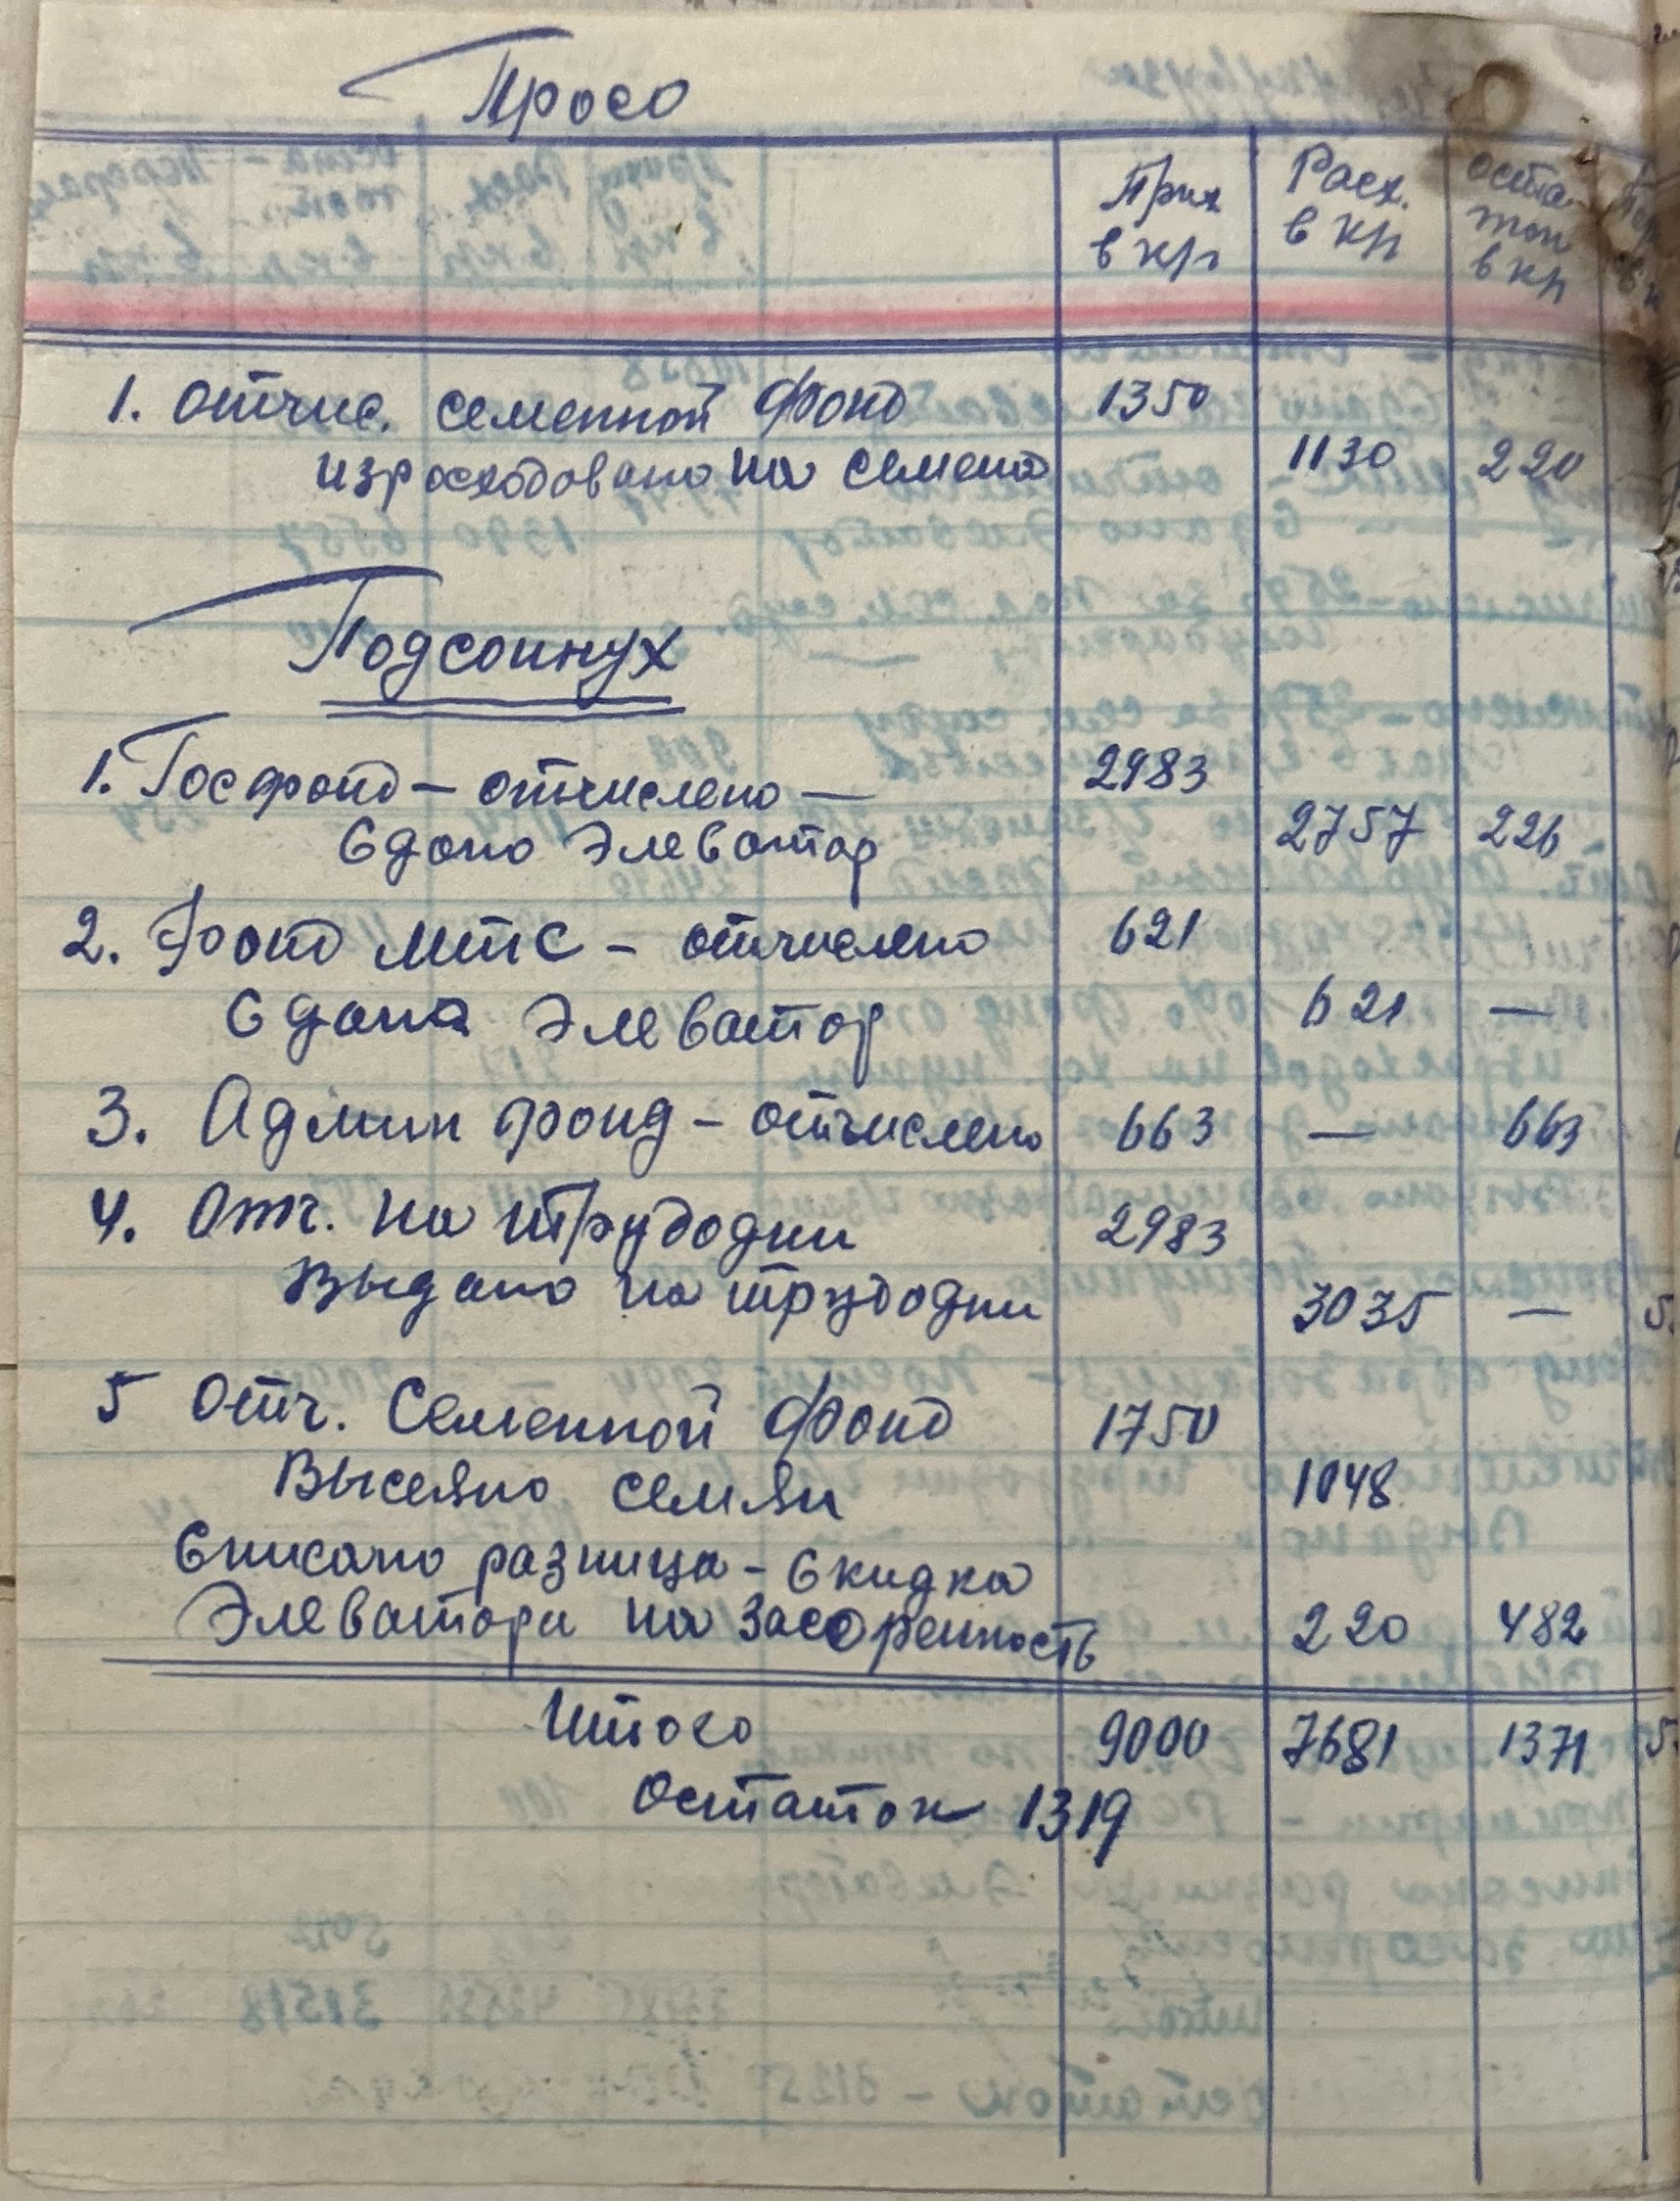 Просо
Прих Расх. оста-
в кр в кр ток
в кр
1. отчис. семенной фонд 1350
израсходовано на семена 1130 220
Подсоннух
1. Госфонд — отчислено — 2983
Сдано Элеватор 2757 226
2. Фонд МТС - отчислено 621
Сдана Элеватор 621 —
3. Админ фонд - отчислено 663 — 663
4. Отч. на трудодни 2983
Выдано на трудодни 3035 —
5 Отч. Семенной фонд 1750
Высеяно семян 1048
Списано разница - Скидка
Элеватори на засоренность 220 482
Итого 9000 7681 1371
Остаток 1319